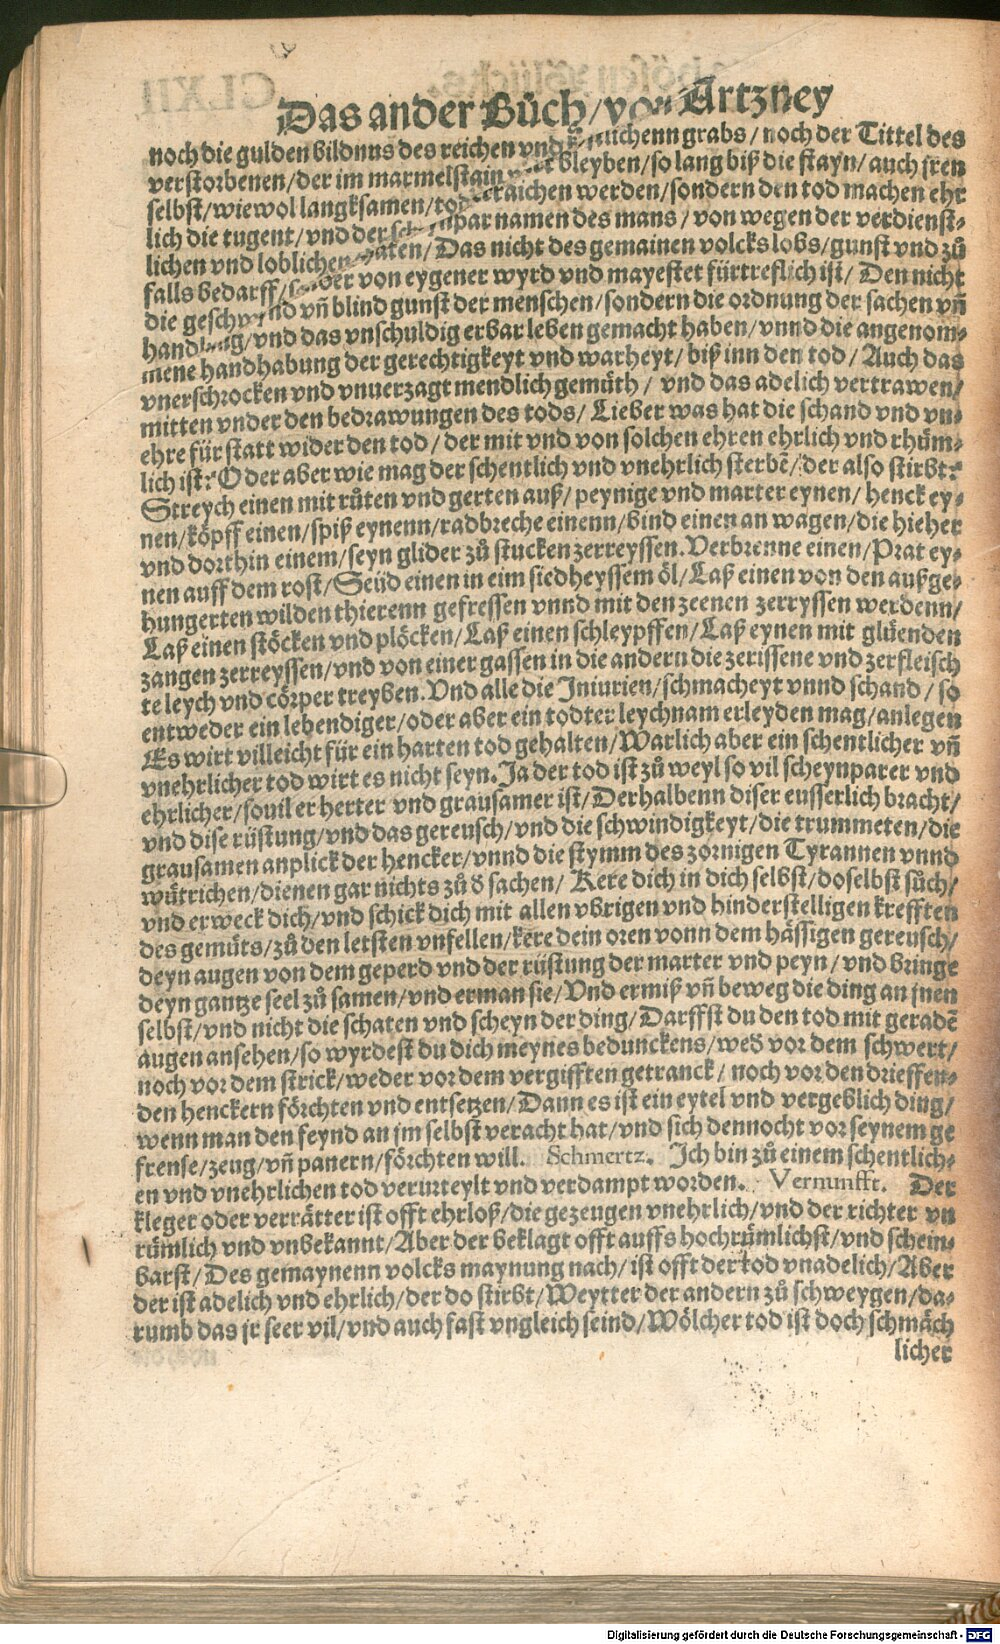 Das ander Bůch/von Artzney
noch die gulden bildnus des reichen vnd grabs/noch der Tittel des
verstorbenen/der im marmelstain bleyben/so lang biß die stayn/auch jren
selbst/wiewol langksamen/tod raichen werden/sondern den tod machen ehr
lich die tugent/vnd der namen des mans/von wegen der verdienst⸗
lichen vnd loblichen thaten/Das nicht des gemainen volcks lobs/gunst vnd zů
falls bedarff/sonder von eygener wyrd vnd mayestet fürtreflich ist/Den nicht
die geschwind vñ blind gunst der menschen/sondern die ordnung der sachen vñ
handlung/vnd das vnschuldig erbar leben gemacht haben/vnnd die angenom⸗
mene handhabung der gerechtigkeyt vnd warheyt/biß inn den tod/Auch das
vnerschrocken vnd vnuerzagt mendlich gemüth/vnd das adelich vertrawen/
mitten vnder den bedrawungen des tods/Lieber was hat die schand vnd vn⸗
ehre für statt wider den tod/der mit vnd von solchen ehren ehrlich vnd rhům⸗
lich ist? Oder aber wie mag der schentlich vnd vnehrlich sterbē/der also stirbt?
Streych einen mit růten vnd gerten auß/peynige vnd marter eynen/henck ey⸗
nen/köpff einen/spiß eynenn/radbreche einenn/bind einen an wagen/die hieher
vnd dorthin einem/seyn glider zů stucken zerreyssen. Verbrenne einen/Prat ey⸗
nen auff dem rost/Seüd einen in eim siedheyssem öl/Laß einen von den außge⸗
hungerten wilden thierenn gefressen vnnd mit den zeenen zerryssen werdenn/
Laß einen stöcken vnd plöcken/Laß einen schleypffen/Laß eynen mit glüenden
zangen zerreyssen/vnd von einer gassen in die andern die zerissene vnd zerfleisch
te leych vnd cörper treyben. Vnd alle die Iniurien/schmacheyt vnnd schand/so
entweder ein lebendiger/oder aber ein todter leychnam erleyden mag/anlegen
Es wirt villeicht für ein harten tod gehalten/Warlich aber ein schentlicher vñ
vnehrlicher tod wirt es nicht seyn. Ja der tod ist zů weyl so vil scheynparer vnd
ehrlicher/souil er herter vnd grausamer ist/Derhalbenn diser eusserlich bracht/
vnd dise rüstung/vnd das gereusch/vnd die schwindigkeyt/die trummeten/die
grausamen anplick der hencker/vnnd die stymm des zornigen Tyrannen vnnd
wůtrichen/dienen gar nichts zů d̄ sachen/Kere dich in dich selbst/doselbst sůch/
vnd erweck dich/vnd schick dich mit allen vbrigen vnd hinderstelligen krefften
des gemüts/zů den letsten vnfellen/kere dein oren vonn dem hässigen gereusch/
deyn augen von dem geperd vnd der rüstung der marter vnd peyn/vnd bringe
deyn gantze seel zů samen/vnd erman sie/Vnd ermiß vñ beweg die ding an jnen
selbst/vnd nicht die schaten vnd scheyn der ding/Darffst du den tod mit geradē
augen ansehen/so wyrdest du dich meynes bedunckens/wed̄ vor dem schwert/
noch vor dem strick/weder vor dem vergifften getranck/noch vor den drieffen⸗
den henckern förchten vnd entsetzen/Dann es ist ein eytel vnd vergeblich ding/
wenn man den feynd an jm selbst veracht hat/vnd sich dennocht vor seynem ge
frense/zeug/vñ panern/förchten will. Schmertz. Ich bin zů einem schentlich⸗
en vnd vnehrlichen tod verurteylt vnd verdampt worden. Vernunfft. Der
kleger oder verrätter ist offt ehrloß/die gezeugen vnehrlich/vnd der richter vn
rümlich vnd vnbekannt/Aber der beklagt offt auffs hochrümlichst/vnd schein⸗
barst/Des gemaynenn volcks maynung nach/ist offt der tod vnadelich/Aber
der ist adelich vnd ehrlich/der do stirbt/Weytter der andern zů schweygen/da⸗
rumb das jr seer vil/vnd auch fast vngleich seind/Wölcher tod ist doch schmäch
licher
Digitalisierung gefördert durch die Deutsche Forschungsgemeinschaft - DFG